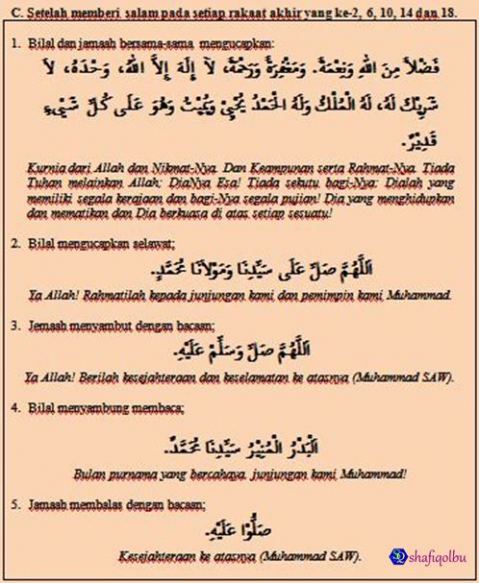 C. Setelah memberi salam pada setiap rakaat akhir yang ke-2, 6, 10, 14 dan 18.
1. Bilal dan jamaah bersama-sama mengucapkan:
فَضْلاً مِنَ اللهِ وَنِعْمَةً. وَمَغْفِرَةً وَرَحْمَةً، لَا إِلَهَ إِلاَّ اللهُ، وَحْدَهُ، لَا
شَرِيْكَ لَهُ، لَهُ الْمُلْكُ وَلَهُ الْحَمْدُ يُحْيِيْ وَيُمِيْتُ وَهُوَ عَلَى كُلِّ شَيْءٍ
قَدِيْرٌ.
Kurnia dari Allah dan Nikmat-Nya. Dan Keampunan serta Rahmat-Nya. Tiada
Tuhan melainkan Allah; DiaNya Esa! Tiada sekutu bagi-Nya; Dialah yang
memiliki segala kerajaan dan bagi-Nya segala pujian! Dia yang menghidupkan
dan mematikan dan Dia berkuasa di atas setiap sesuatu!
2. Bilal mengucapkan selawat;
اَللَّهُمَّ صَلِّ عَلَى سَيِّدِنَا وَمَوْلَانَا مُحَمَّدٍ.
Ya Allah! Rahmatilah kepada junjungan kami dan pemimpin kami, Muhammad.
3. Jemaah menyambut dengan bacaan;
اَللَّهُمَّ صَلِّ وَسَلِّمْ عَلَيْهِ.
Ya Allah! Berilah kesejahteraan dan keselamatan ke atasnya (Muhammad SAW).
4. Bilal menyambung membaca;
اَلْبَدْرُ الْمُنِيْرُ سَيِّدُنَا مُحَمَّدٌ.
Bulan purnama yang bercahaya, junjungan kami, Muhammad!
5. Jamaah membalas dengan bacaan;
صَلُّوْا عَلَيْهِ.
Kesejahteraan ke atasnya (Muhammad SAW).
shafiqolbu